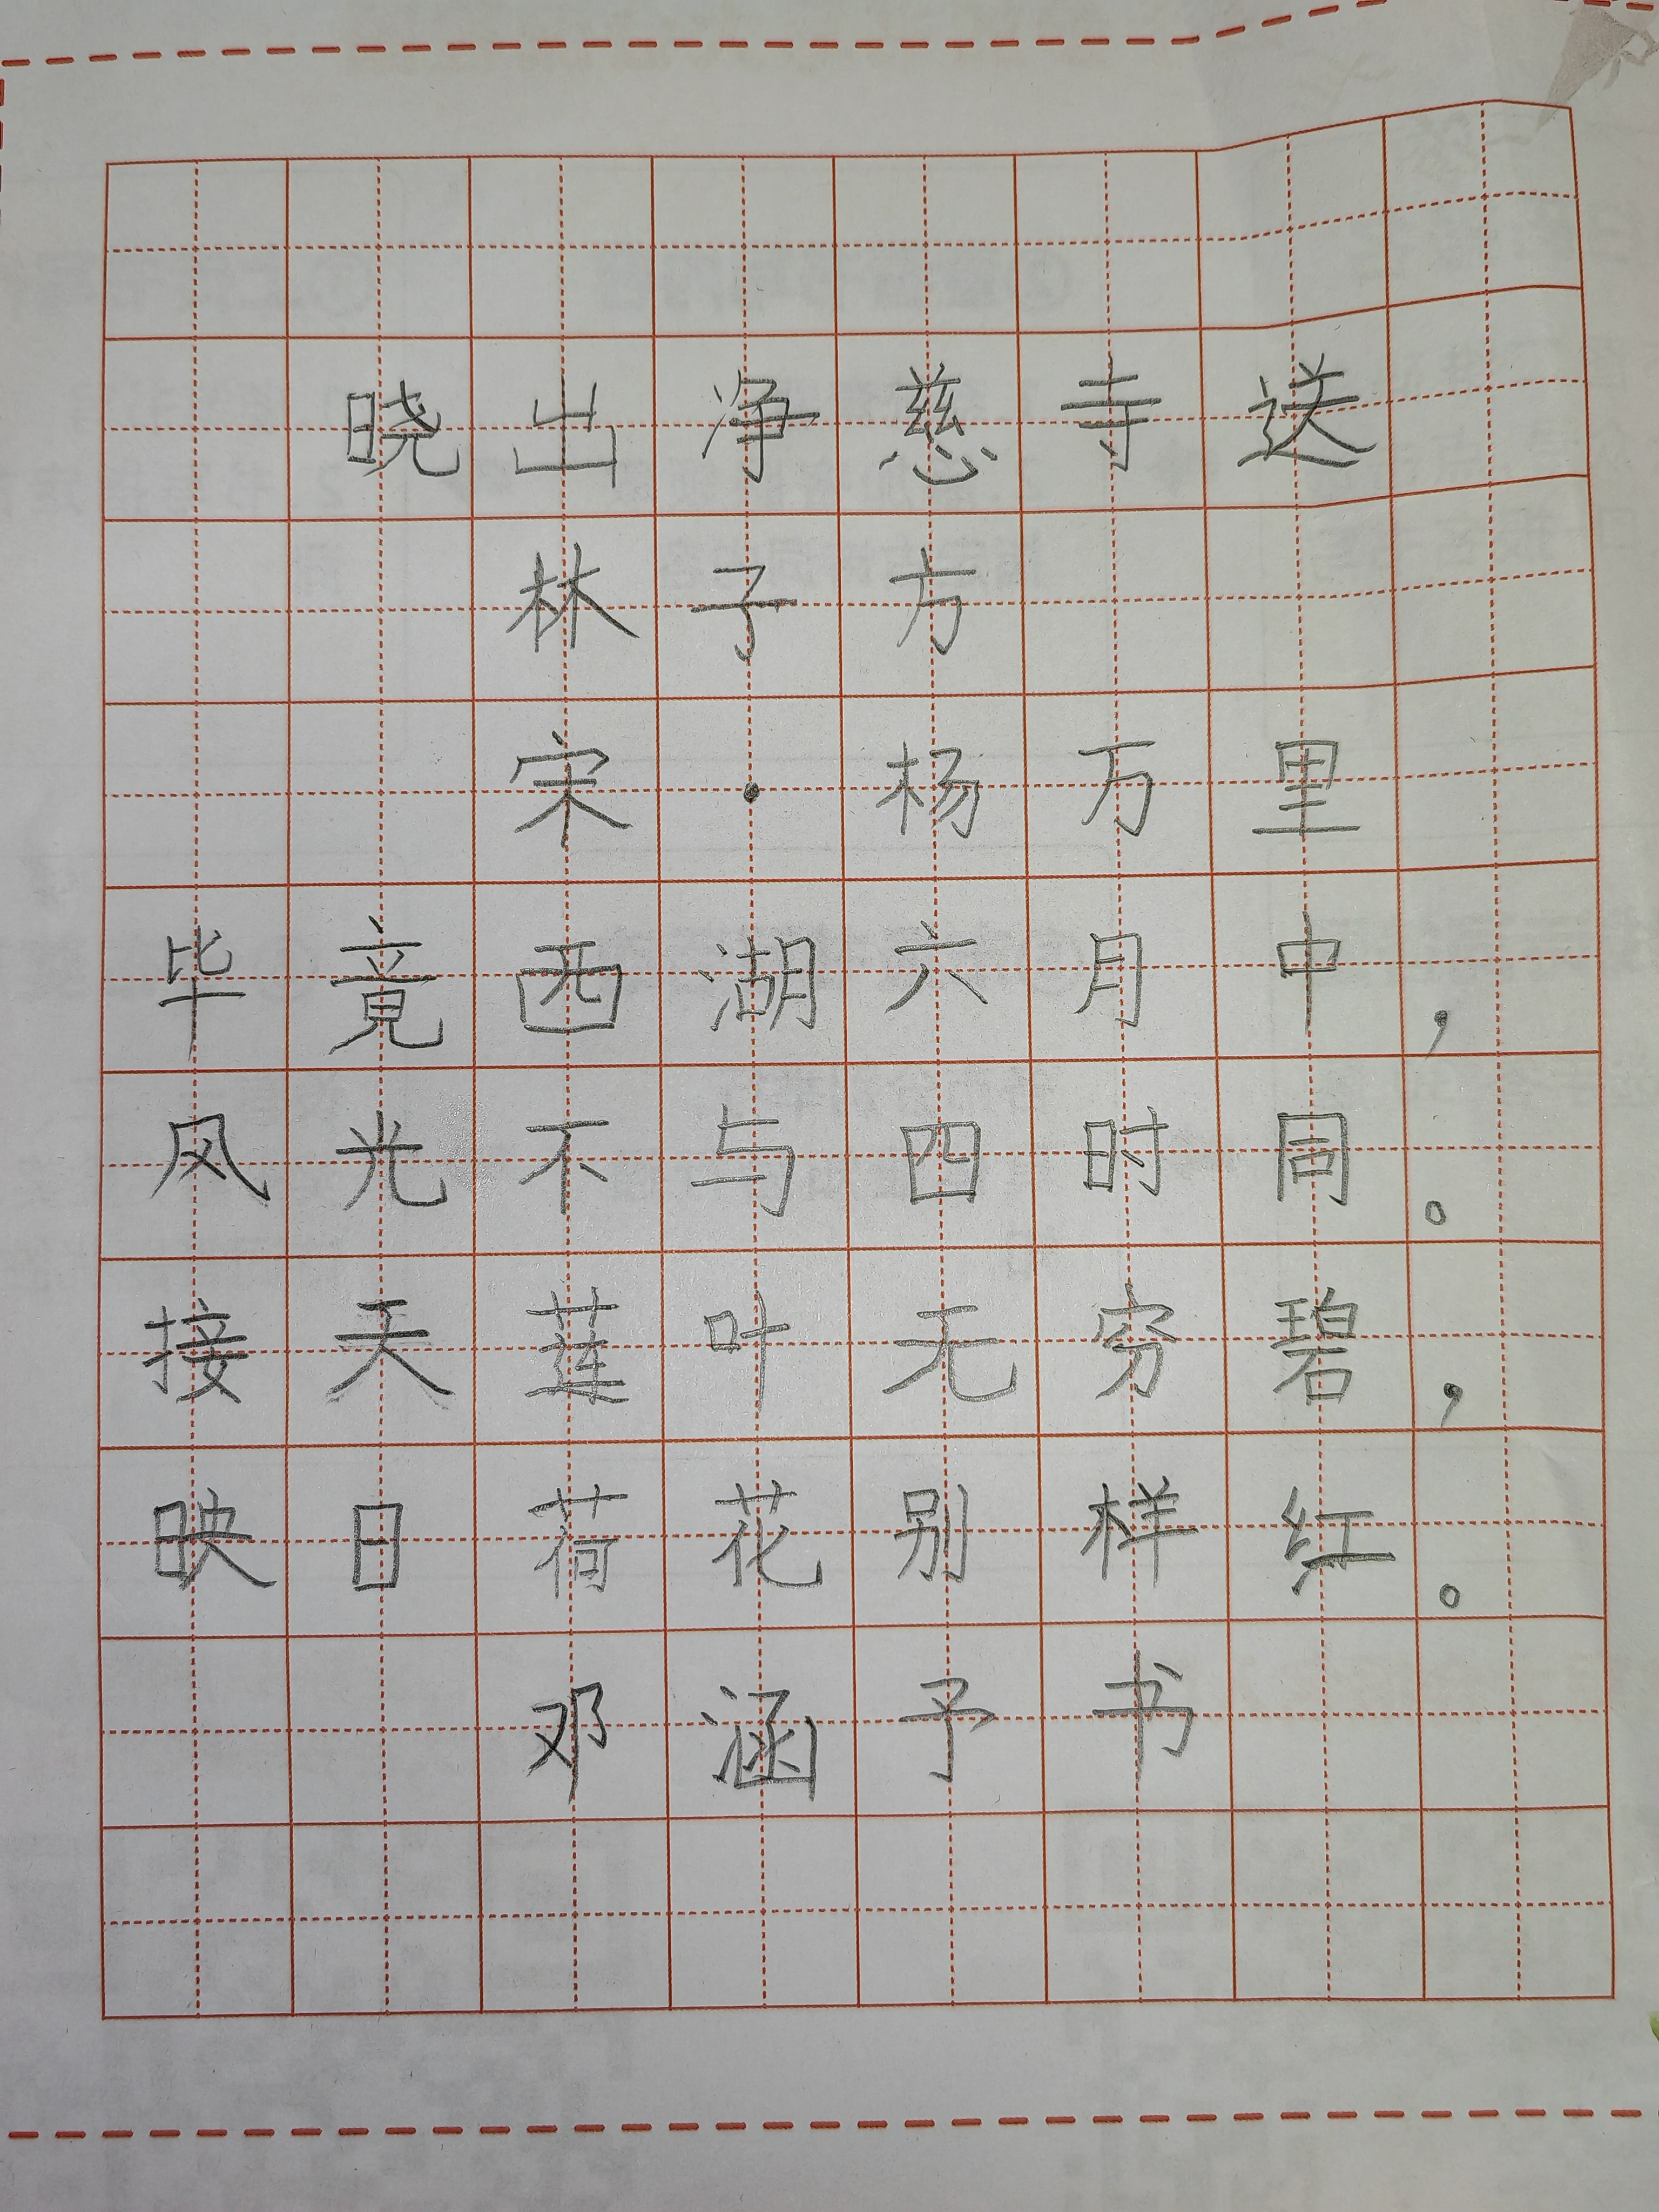 晓出净慈寺送
林子方
宋·杨万里
毕竟西湖六月中，
风光不与四时同。
接天莲叶无穷碧，
映日荷花别样红。
邓涵予书